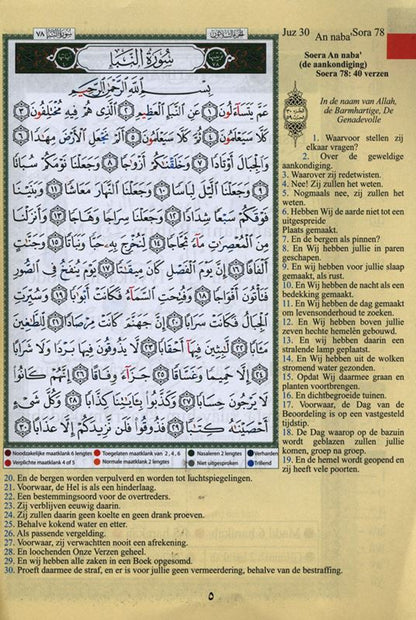 Juz 30 An naba' Sora 78
سُورَةُ النَّبَإِ ٧٨
سُورَةُ النَّبَإِ
بِسْمِ اللَّهِ الرَّحْمَٰنِ الرَّحِيمِ
عَمَّ يَتَسَآءَلُونَ ١ عَنِ ٱلنَّبَإِ ٱلْعَظِيمِ ٢ ٱلَّذِى هُمْ فِيهِ مُخْتَلِفُونَ ٣
كَلَّا سَيَعْلَمُونَ ٤ ثُمَّ كَلَّا سَيَعْلَمُونَ ٥ أَلَمْ نَجْعَلِ ٱلْأَرْضَ مِهَٰدًا ٦
وَٱلْجِبَالَ أَوْتَادًا ٧ وَخَلَقْنَٰكُمْ أَزْوَٰجًا ٨ وَجَعَلْنَا نَوْمَكُمْ سُبَاتًا
٩ وَجَعَلْنَا ٱلَّيْلَ لِبَاسًا ١٠ وَجَعَلْنَا ٱلنَّهَارَ مَعَاشًا ١١ وَبَنَيْنَا
فَوْقَكُمْ سَبْعًا شِدَادًا ١٢ وَجَعَلْنَا سِرَاجًا وَهَّاجًا ١٣ وَأَنزَلْنَا
مِنَ ٱلْمُعْصِرَٰتِ مَآءً ثَجَّاجًا ١٤ لِّنُخْرِجَ بِهِۦ حَبًّا وَنَبَاتًا ١٥ وَجَنَّٰتٍ
أَلْفَافًا ١٦ إِنَّ يَوْمَ ٱلْفَصْلِ كَانَ مِيقَٰتًا ١٧ يَوْمَ يُنفَخُ فِى ٱلصُّورِ
فَتَأْتُونَ أَفْوَاجًا ١٨ وَفُتِحَتِ ٱلسَّمَآءُ فَكَانَتْ أَبْوَٰبًا ١٩ وَسُيِّرَتِ
ٱلْجِبَالُ فَكَانَتْ سَرَابًا ٢٠ إِنَّ جَهَنَّمَ كَانَتْ مِرْصَادًا ٢١ لِّلطَّٰغِينَ
مَـَٔابًا ٢٢ لَّٰبِثِينَ فِيهَآ أَحْقَابًا ٢٣ لَّا يَذُوقُونَ فِيهَا بَرْدًا وَلَا شَرَابًا
٢٤ إِلَّا حَمِيمًا وَغَسَّاقًا ٢٥ جَزَآءً وِفَاقًا ٢٦ إِنَّهُمْ كَانُوا۟
لَا يَرْجُونَ حِسَابًا ٢٧ وَكَذَّبُوا۟ بِـَٔايَٰتِنَا كِذَّابًا ٢٨ وَكُلَّ شَىْءٍ
أَحْصَيْنَٰهُ كِتَٰبًا ٢٩ فَذُوقُوا۟ فَلَن نَّزِيدَكُمْ إِلَّا عَذَابًا ٣٠
Noodzakelijke maatklank 6 lengtes Toegelaten maatklank van 2, 4, 6 Nasaleren 2 lengtes Verharden
Verplichte maatklank 4 of 5 Normale maatklank 2 lengtes Niet uitgesproken Trillend
Soera An naba'
(de aankondiging)
Soera 78: 40 verzen
In de naam van Allah,
de Barmhartige, De
Genadevolle
1. Waarvoor stellen zij
elkaar vragen?
2. Over de geweldige
aankondiging.
3. Waarover zij redetwisten.
4. Nee! Zij zullen het weten.
5. Nogmaals nee, zij zullen het
weten.
6. Hebben Wij de aarde niet tot een
uitgespreide
Plaats gemaakt.
7. En de bergen als pinnen?
8. En Wij hebben jullie in paren
geschapen.
9. En Wij hebben voor jullie slaap
gemaakt, als rust.
10. En Wij hebben de nacht als een
bedekking gemaakt.
11. En Wij hebben de dag gemaakt
om levensonderhoud te zoeken.
12. En Wij hebben boven jullie
zeven hechte hemelen gebouwd.
13. En Wij hebben daarin een
stralende lamp geplaatst.
14. En Wij hebben uit de wolken
stromend water gezonden.
15. Opdat Wij daarmee graan en
planten voortbrengen.
16. En dichtbegroeide tuinen.
17. Voorwaar, de Dag van de
Beoordeling is op een vastgesteld
tijdstip.
18. De Dag waarop op de bazuin
wordt geblazen zullen jullie
komen, groep na groep.
19. En de hemel wordt geopend en
zij heeft vele poorten.
20. En de bergen worden verpulverd en worden tot luchtspiegelingen.
21. Voorwaar, de Hel is als een hinderlaag.
22. Een bestemmingsoord voor de overtreders.
23. Zij verblijven eeuwig daarin.
24. Zij zullen daarin geen koelte en geen drank proeven.
25. Behalve kokend water en etter.
26. Als passende vergelding.
27. Voorwaar, zij verwachtten nooit een afrekening.
28. En loochenden Onze Verzen geheel.
29. En wij hebben alle zaken in een Boek opgesomd.
30. Proeft daarmee de straf, en er is voor jullie geen vermeerdering, behalve van de bestraffing.
٥